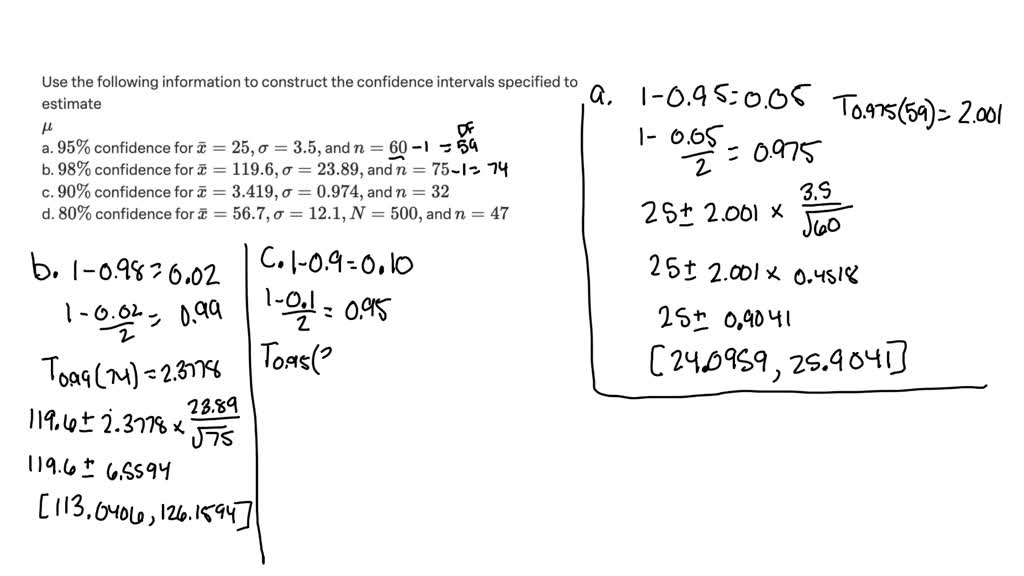 Use the following information to construct the confidence intervals specified to
estimate
μ
a. 95% confidence for x̄ = 25, σ = 3.5, and n = 60 -1 = 59
DF
b. 98% confidence for x̄ = 119.6, σ = 23.89, and n = 75 -1 = 74
c. 90% confidence for x̄ = 3.419, σ = 0.974, and n = 32
d. 80% confidence for x̄ = 56.7, σ = 12.1, N = 500, and n = 47
a. 1-0.95=0.05
T0.975(59)=2.001
1- 0.05/2 = 0.975
25± 2.001 × 3.5/√60
25± 2.001 × 0.4518
25± 0.9041
[24.0959, 25.9041]
b. 1-0.98=0.02
1-0.02/2 = 0.99
T0.99(74)=2.3778
119.6± 2.3778 × 23.89/√75
119.6 ± 6.5594
[113.0406, 126.1594]
c. 1-0.9=0.10
1-0.1/2 = 0.95
T0.95(3